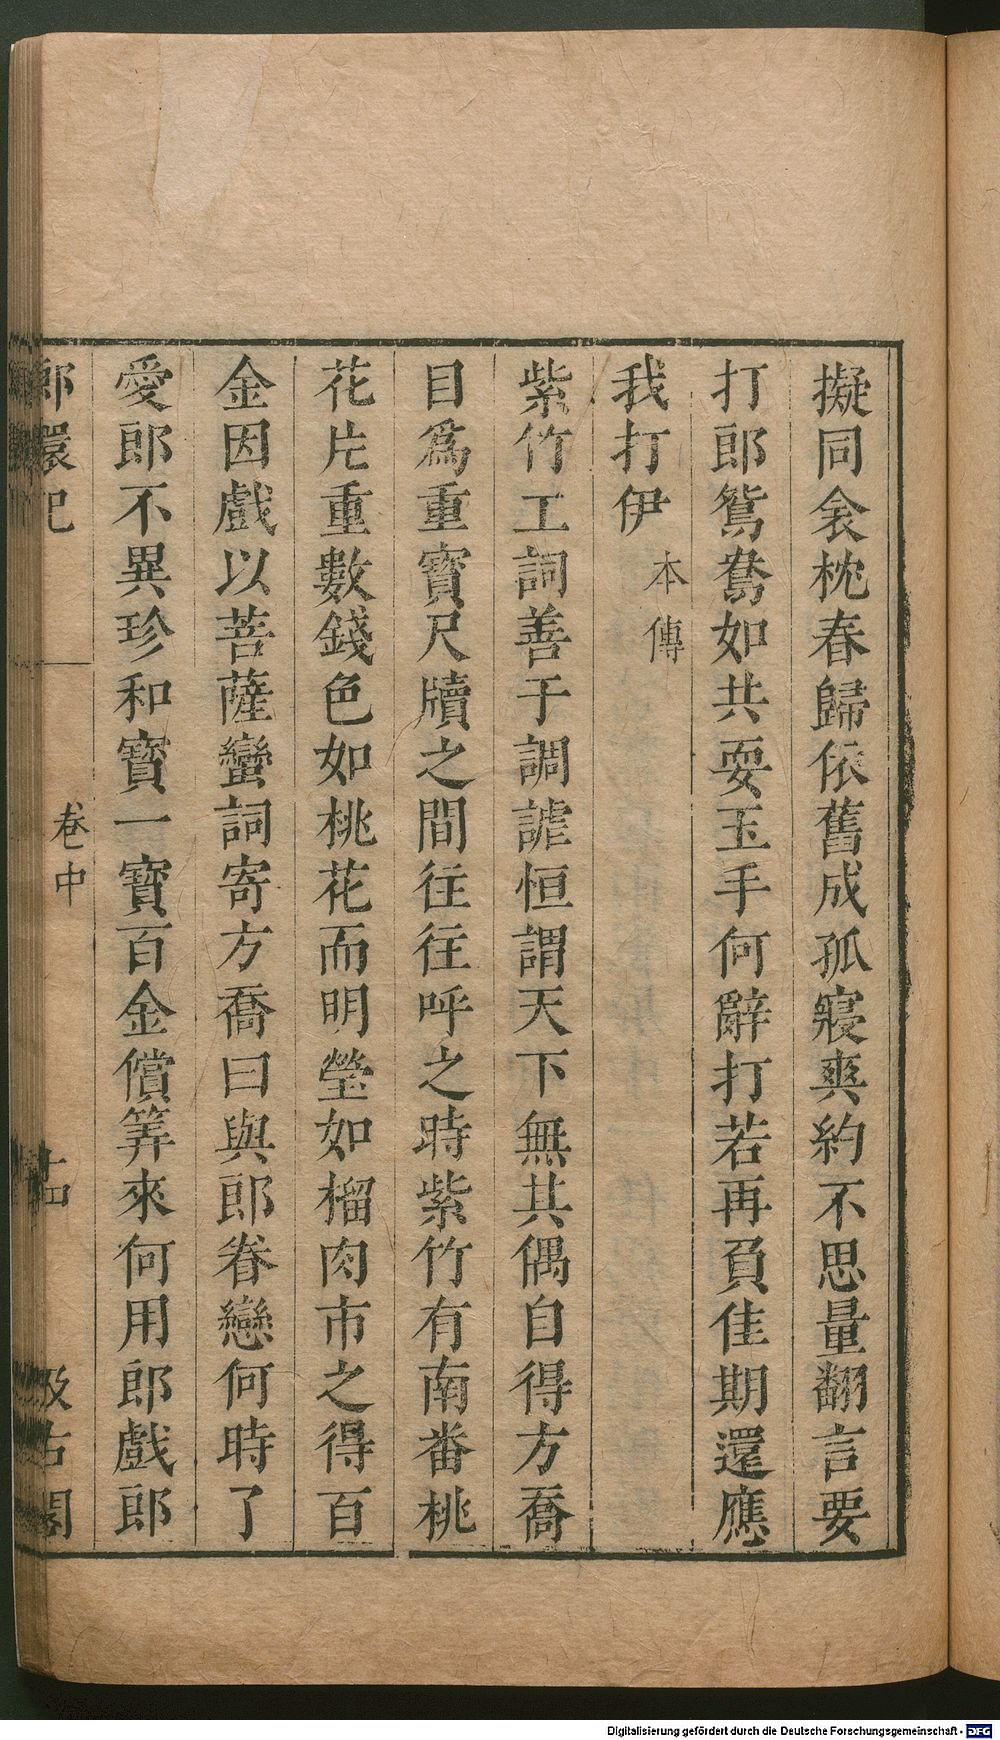 擬同衾枕春歸依舊成孤寢爽約不思量翻言要
打郎鴛鴦如共耍玉手何辭打若再負佳期還應
我打伊 本傳
紫竹工詞善于調謔恒謂天下無其偶自得方喬
目爲重寶尺牘之間往往呼之時紫竹有南番桃
花片重數錢色如桃花而明瑩如榴肉市之得百
金因戲以菩薩蠻詞寄方喬曰與郎眷戀何時了
愛郎不異珍和寶一寶百金償筭來何用郎戲郎
卷中
十四
汲古閣
Digitalisierung gefördert durch die Deutsche Forschungsgemeinschaft - DFG